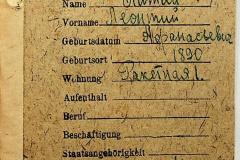 Name
Vorname Леонтий
Geburtsdatum Афанасьевич
Geburtsort 1890
Wohnung Ракетная 1.
Aufenthalt
Beruf
Beschäftigung
Staatsangehörigkeit